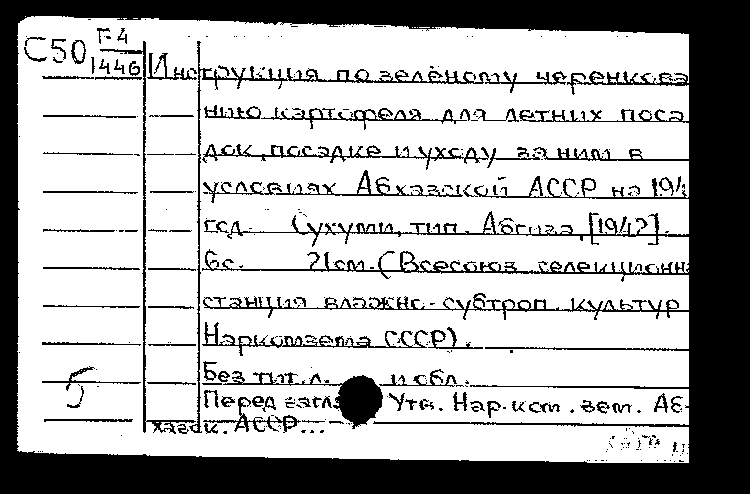 С50 F4
1446
Инструкция по зелёному черенкова
нию картофеля для летних поса
док, посадке и уходу за ним в
условиях Абхазской АССР на 194
год. Сухуми, тип. Абгиза, [1942].
6с. 21см. (Всесоюз. селекционн
станция влажно-субтроп. культур
Наркомзема СССР).
Без тит. л. и обл.
5
Перед загл. Утв. Нар. ком. зем. Аб-
хазск. АССР...